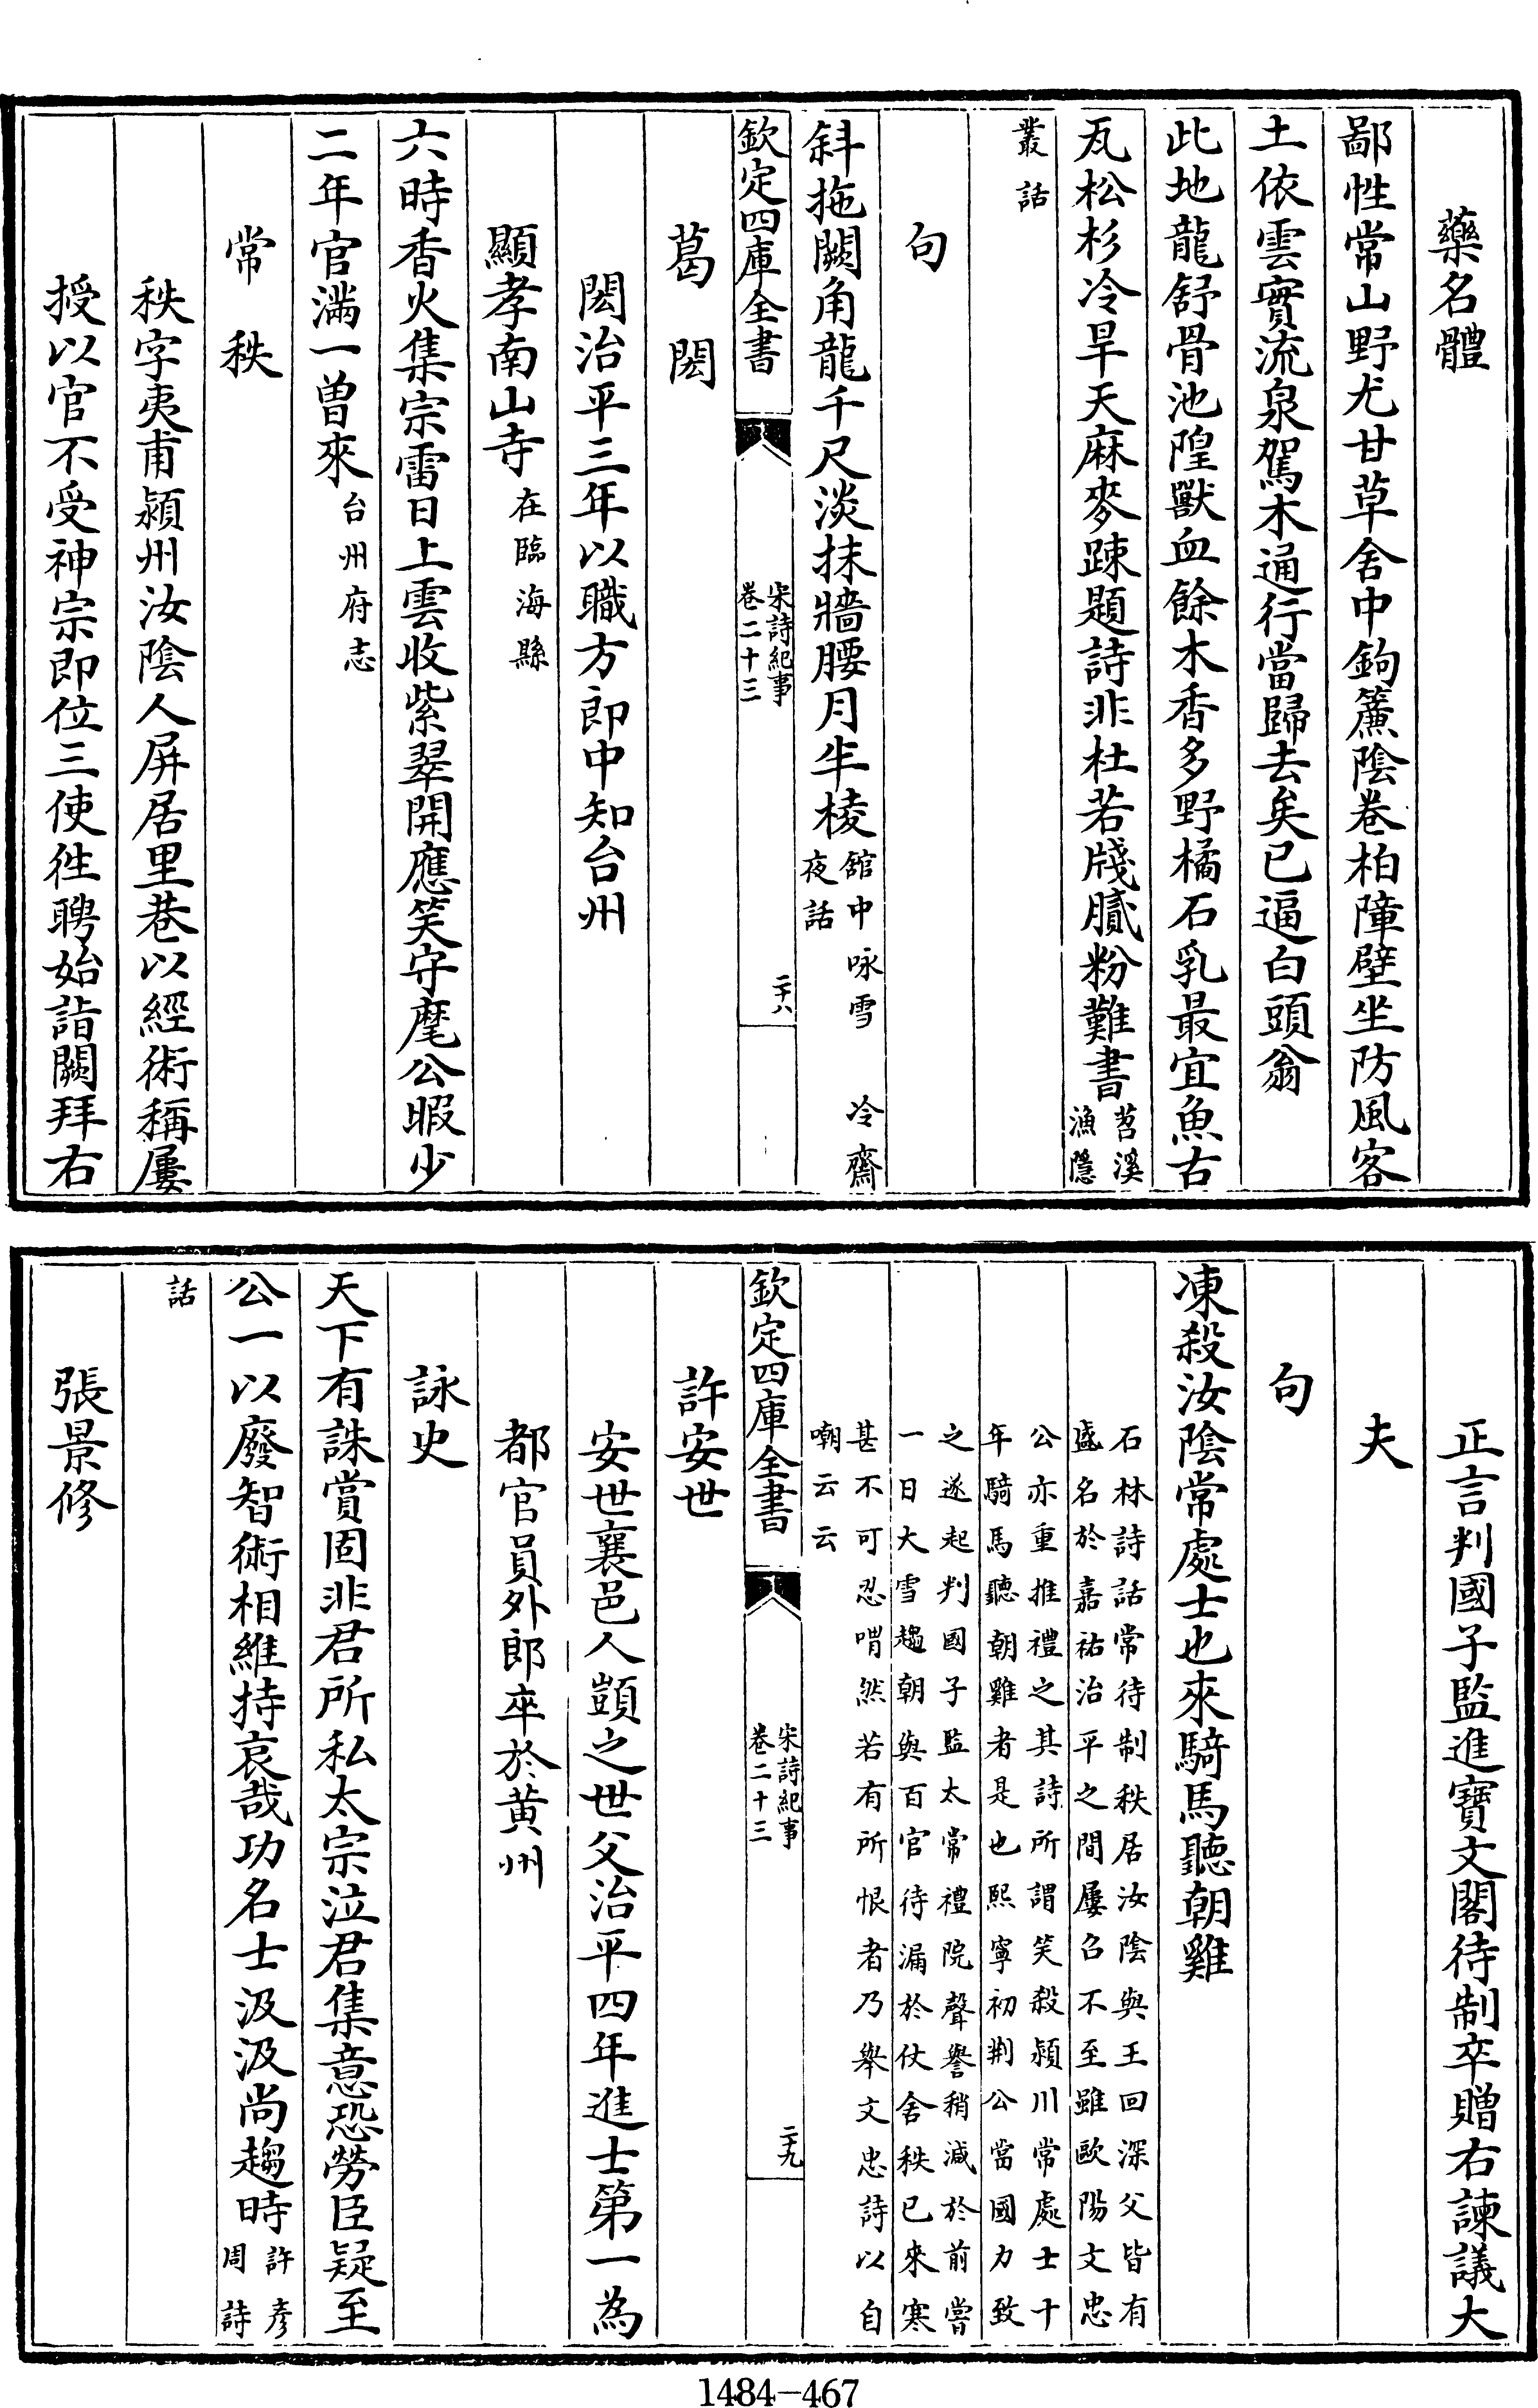 藥名體
鄙性常山野尤甘草舍中鉤簾陰卷柏障壁坐防風客
土依雲實流泉駕木通行當歸去矣已逼白頭翁
此地龍舒骨池隍獸血餘木香多野橘石乳最宜魚古
瓦松杉冷旱天麻麥疎題詩非杜若牋膩粉難書苕溪漁隱
叢話
句
斜拖闕角龍千尺淡抹牆腰月半棱舘中咏雪 冷齋夜話
欽定四庫全書 宋詩紀事卷二十三 二十八
葛閎
閎治平三年以職方郎中知台州
顯孝南山寺在臨海縣
六時香火集宗雷日上雲收紫翠開應笑守麾公暇少
二年官滿一曾來台州府志
常秩
秩字夷甫潁州汝陰人屏居里巷以經術稱屢
授以官不受神宗即位三使徃聘始詣闕拜右
正言判國子監進寶文閣待制卒贈右諫議大
夫
句
凍殺汝陰常處士也來騎馬聽朝雞
石林詩話常待制秩居汝陰與王回深父皆有
盛名於嘉祐治平之間屢召不至雖歐陽文忠
公亦重推禮之其詩所謂笑殺潁川常處士十
年騎馬聽朝雞者是也熙寧初荆公當國力致
之遂起判國子監太常禮院聲譽稍減於前嘗
一日大雪趨朝與百官待漏於仗舍秩已來寒
甚不可忍喟然若有所恨者乃舉文忠詩以自
嘲云云
欽定四庫全書 宋詩紀事卷二十三 二十九
許安世
安世襄邑人顗之世父治平四年進士第一為
都官員外郎卒於黄州
詠史
天下有誅賞固非君所私太宗泣君集意恐勞臣疑至
公一以廢智術相維持哀哉功名士汲汲尚趨時許彥周詩
話
張景修
1484-467